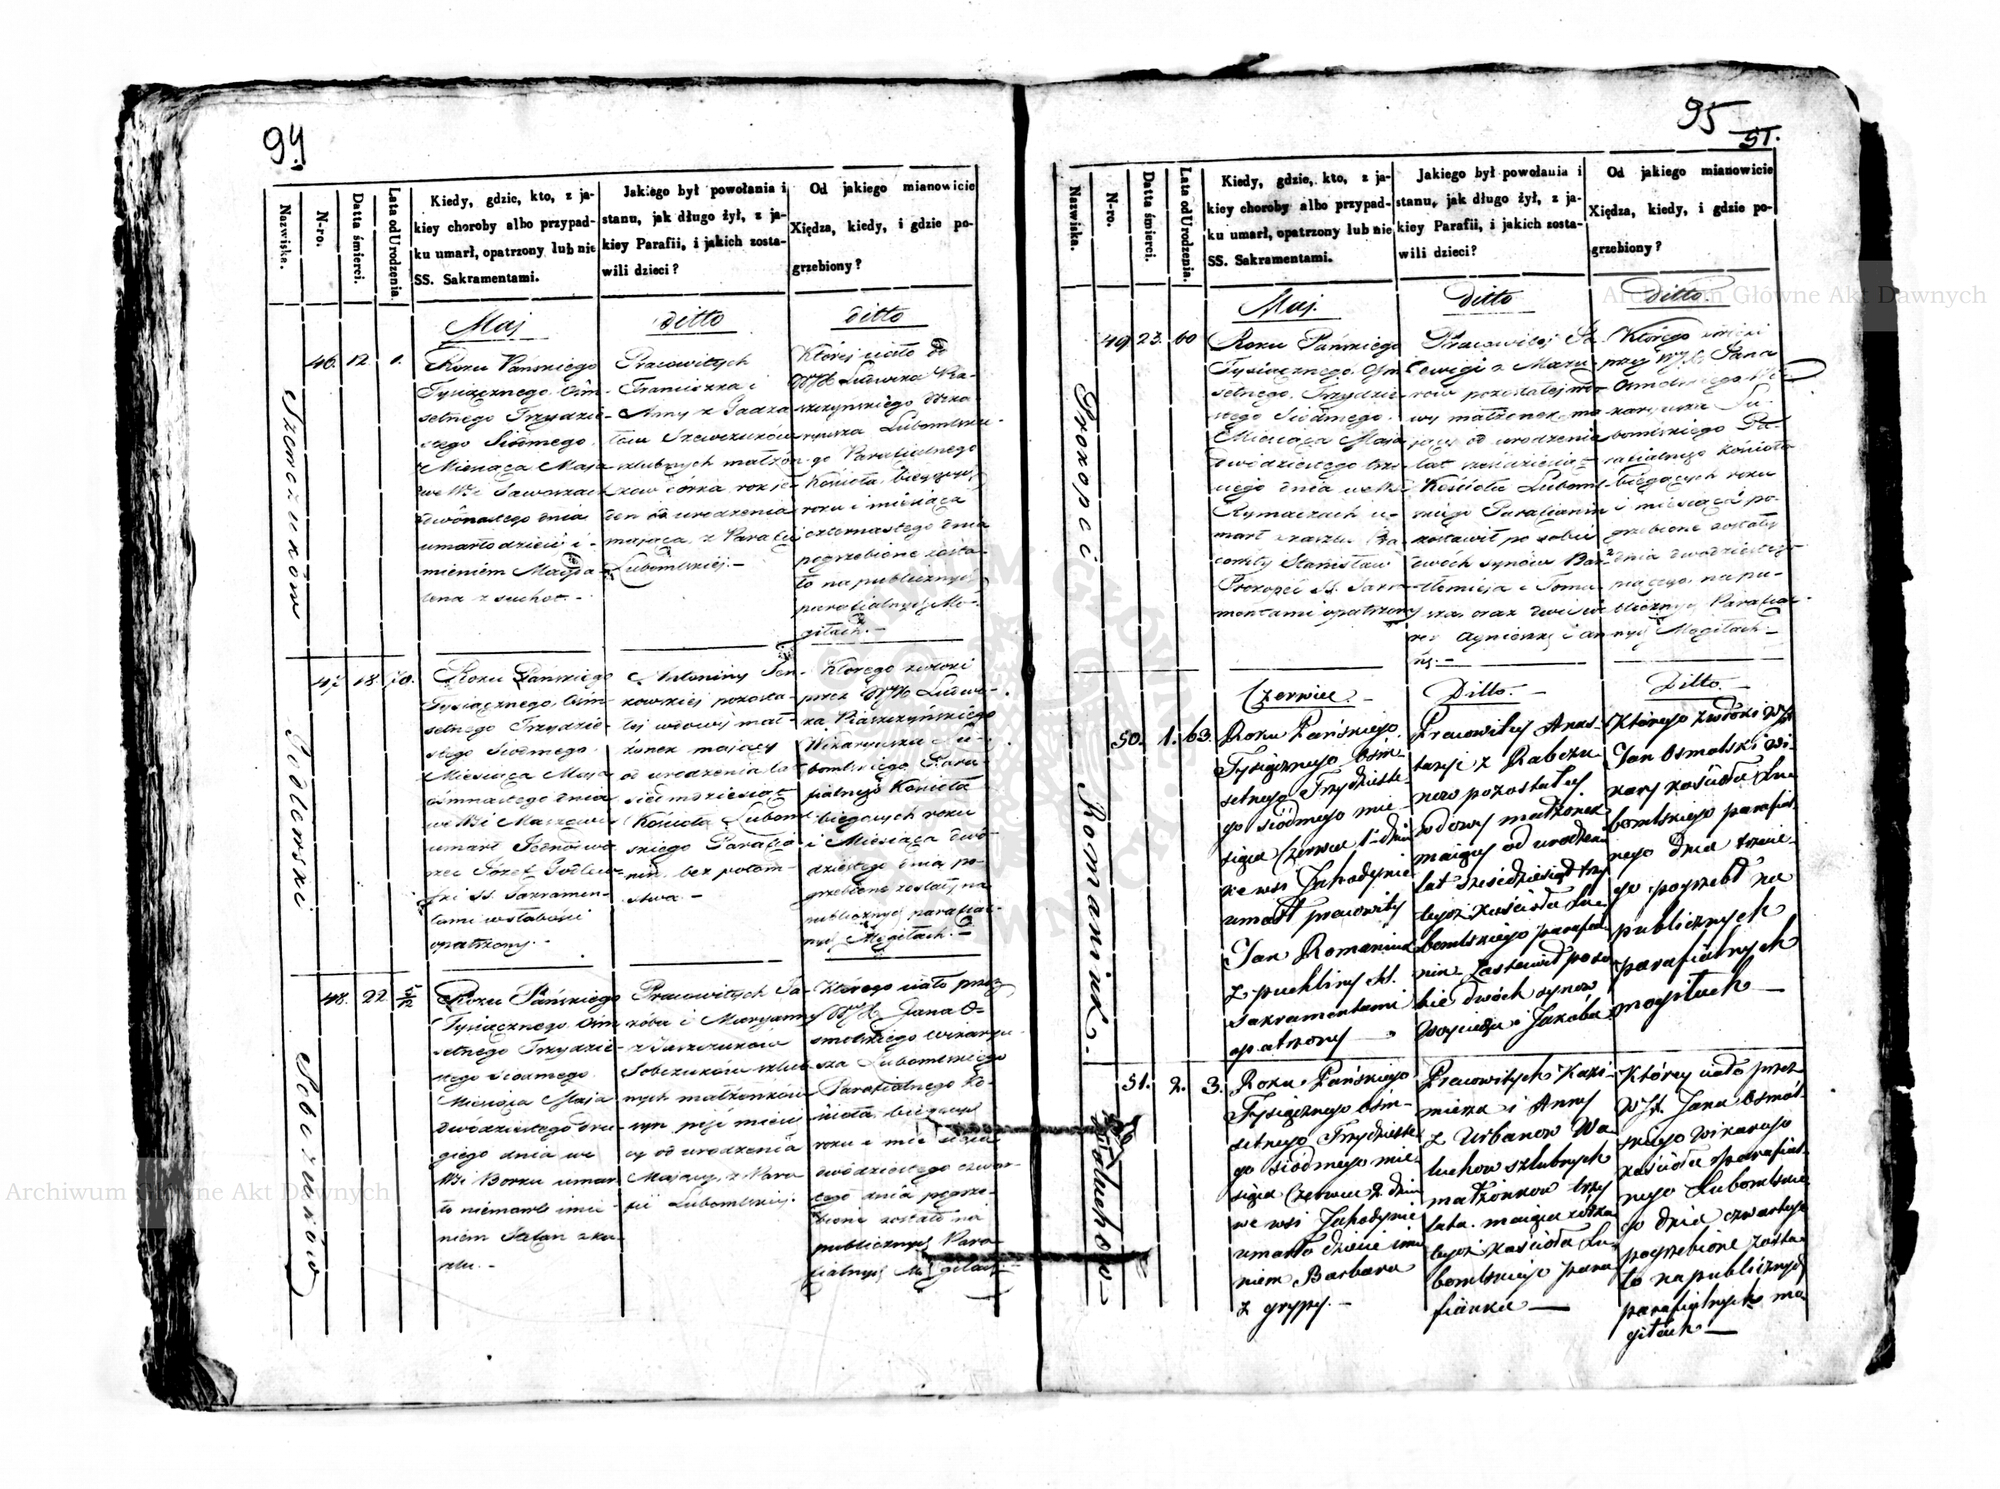 94
Nazwiska.
N-ro.
Datta śmierci.
Lata od Urodzenia.
Kiedy, gdzie, kto, z ja-
kiey choroby albo przypad-
ku umarł, opatrzony lub nie
SS. Sakramentami.
Jakiego był powołania i
stanu, jak długo żył, z ja-
kiey Parafii, i jakich zosta-
wili dzieci?
Od jakiego mianowicie
Xiędza, kiedy, i gdzie po-
grzebiony?
Maj
ditto
ditto
Szewczuków
46. 12. 1.
Roku Pańskiego
Tysiącznego Ośm-
setnego Trzydzie-
stego Siódmego
Miesiąca Maja
we Wsi
dwónastego dnia
umarło dziecie i-
mieniem Magda-
lena z suchot.-
Pracowitych
Franciszka i
Anny z
Szewczuków
szlubnych małżon-
ków córka, rok je-
den od urodzenia
mająca, z Parafii
Lubomlskiej.-
Której ciało
WJX Ludwika Ra-
szczyńskiego Wika-
ryusza Lubomlskie-
go Parafialnego
Kościoła, bieżących
roku i miesiąca
czternastego dnia
pogrzebione zosta-
ło na publicznych
parafialnych Mo-
giłach.-
Podlewski
47. 18. 70.
Roku Pańskiego
Tysiącznego Ośm-
setnego Trzydzie-
stego Siódmego
Miesiąca Maja
ośmnastego dnia
we Wsi Maszowie
umarł
Józef Podlew-
ski SS. Sakramen-
tami w słabości
opatrzony.-
Antoniny
pozosta-
łej wdowy mał-
żonek mający
od urodzenia lat
siedmdziesiąt
Kościoła Luboml-
skiego Parafia-
nin, bez potom-
stwa.-
Którego zwłoki
przez WJX Ludwi-
ka Raszczyńskiego
Wikaryusza Lu-
bomlskiego Para-
fialnego Kościoła
bieżących roku
i Miesiąca dwó-
dziestego dnia po-
grzebione zostały na
publicznych parafial-
nych Mogiłach.-
Sobczuków
48. 22.
Roku Pańskiego
Tysiącznego Ośm-
setnego Trzydzie-
stego Siódmego
Miesiąca Maja
dwódziestego dru-
giego dnia we
Wsi Borku umar-
ło niemowle imie-
niem
Pracowitych Ja-
kóba i Maryanny
Sobczuków szlub-
nych małżonków
syn
od urodzenia
Mający, z Para-
fii Lubomlskiej.
Którego ciało przez
WJX Jana O-
smolskiego Wikaryu-
sza Lubomlskiego
Parafialnego Ko-
ścioła bieżących
roku i miesiąca
dwódziestego czwar-
tego dnia pogrze-
bione zostało na
publicznych Para-
fialnych Mogiłach.-
95
51.
Nazwiska.
N-ro.
Datta śmierci.
Lata od Urodzenia.
Kiedy, gdzie, kto, z ja-
kiey choroby albo przypad-
ku umarł, opatrzony lub nie
SS. Sakramentami.
Jakiego był powołania i
stanu, jak długo żył, z ja-
kiey Parafii, i jakich zosta-
wili dzieci?
Od jakiego mianowicie
Xiędza, kiedy, i gdzie po-
grzebiony?
Maj.
ditto
ditto
Prokopci
49 23. 60
Roku Pańskiego
Tysiącznego Ośm-
setnego Trzydzie-
stego Siódmego
Miesiąca Maja
dwódziestego trze-
ciego dnia we Wsi
Rymaczach u-
marł z kaszlu Pra-
cowity Stanisław
Prokopci SS. Sakra-
mentami opatrzony
Pracowitej
z Mazu-
rów pozostałej wdo-
wy małżonek, ma-
jący od urodzenia
lat sześćdziesiąt
Kościoła Luboml-
skiego Parafianin
zostawił po sobie
dwóch synów Bar-
tłomieja i Toma-
sza, oraz dwie có-
rek Agnieszkę i An-
nę.-
Którego zwłoki
przez WJX Jana
Osmolskiego Wi-
karyusza Lu-
bomlskiego Pa-
rafialnego Kościoła
bieżących roku
i miesiąca po-
grzebione zostały
dnia dwódziestego
piątego, na pu-
blicznych Parafial-
nych Mogiłach.-
Czerwiec.-
Ditto.-
Ditto.
Romaniuk.
50. 1. 63.
Roku Pańskiego
Tysiącznego Ośm-
setnego Trzydzieste-
go siódmego mie-
siąca Czerwca 1 dnia
we wsi Zahadynie
umarł pracowity
Jan Romaniuk
z puchliny SS.
Sakramentami
opatrzony
Pracowitey Anas-
tazyi z
pozostałey
wdowy małżonek
maiący od urodzenia
lat sześćdziesiąt trzy
tegoż kościoła Lu-
bomlskiego parafia-
nin zastawił po so-
bie dwóch synów
Woyciecha i Jakóba
Którego zwłoki WJX
Jan Osmolski wi-
kary kościoła Lu-
bomlskiego parafial-
nego dnia trzecie-
go pogrzebł na
publicznych
parafialnych
mogiłach
Wołuchów
51. 2. 3.
Roku Pańskiego
Tysiącznego Ośm-
setnego Trzydzieste-
go siódmego mie-
siąca Czerwca 2 dnia
we wsi Zahadynie
umarło dziecie imie-
niem Barbara
z grypy.-
Pracowitych Kazi-
mierza i Anny
z Urbanów Wo-
łuchów szlubnych
małżonków trzy
lata maiąca córka
tegoż kościoła Lu-
bomlskiego para-
fianka
Którey ciało przez
WJX Jana Osmol-
skiego wikarego
kościoła parafial-
nego Lubomlskie-
go dnia czwartego
pogrzebione zosta-
ło na publicznych
parafialnych mo-
giłach